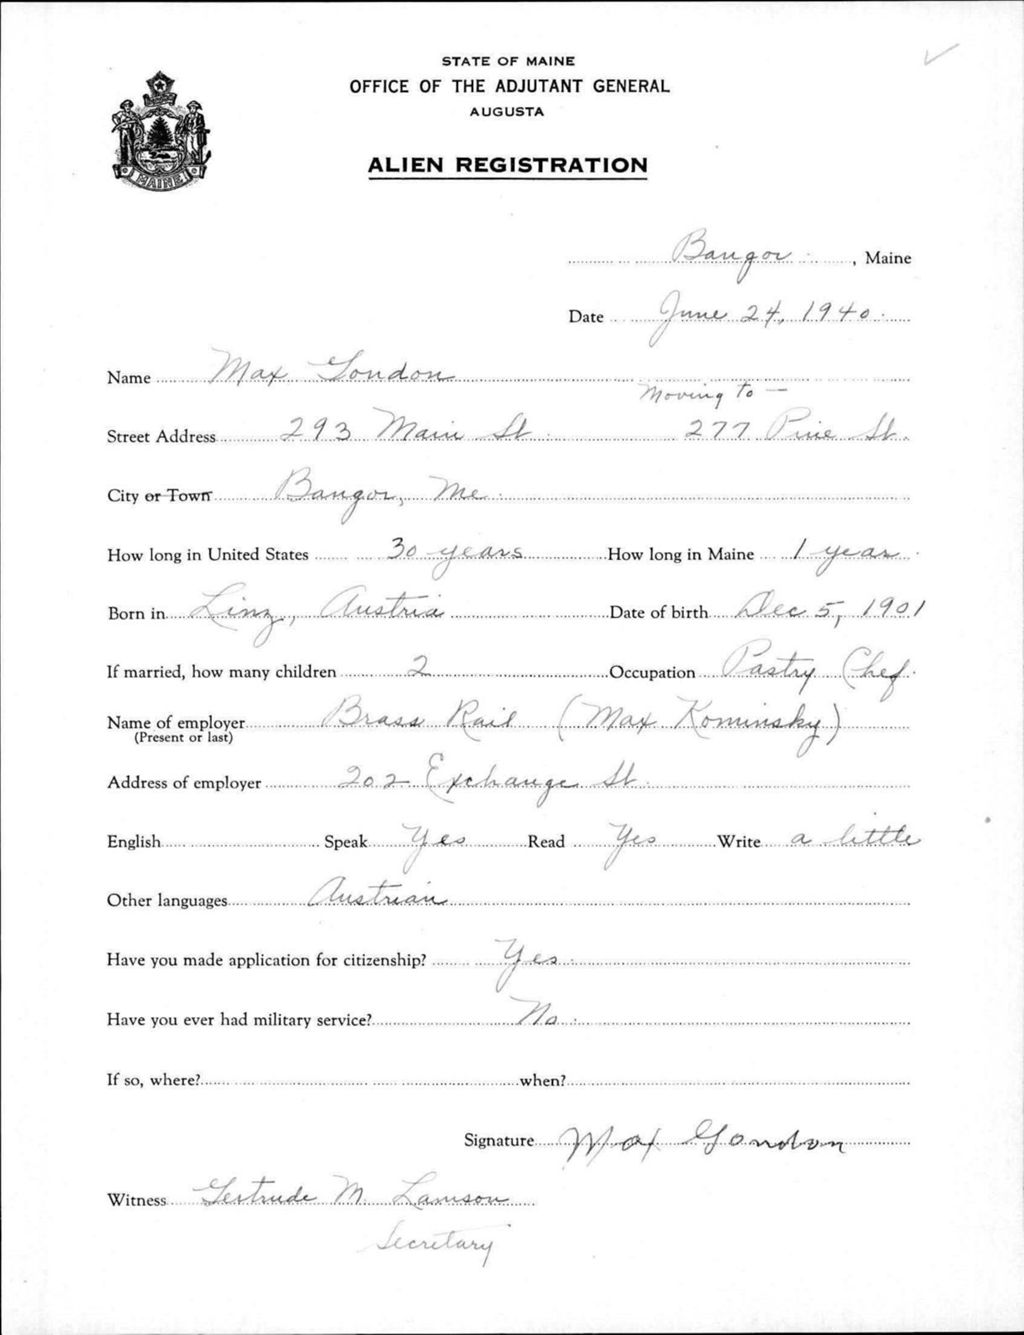 STATE OF MAINE
OFFICE OF THE ADJUTANT GENERAL
AUGUSTA
MAINE
ALIEN REGISTRATION
Bangor, Maine
Date June 24, 1940.
Name Max Gondon
Moving to —
Street Address 293 Main St. 277 Pine St.
City or Town Bangor, Me.
How long in United States 30 years How long in Maine 1 year
Born in Linz, Austria Date of birth Dec 5, 1901
If married, how many children 2 Occupation Pastry Chef.
Name of employer Brass Rail (Max Kominsky)
(Present or last)
Address of employer 202 Exchange St.
English Speak Yes Read Yes Write a little
Other languages Austrian
Have you made application for citizenship? Yes.
Have you ever had military service? No.
If so, where? when?
Signature Max Gondon
Witness Gertrude M. Lamson
Secretary